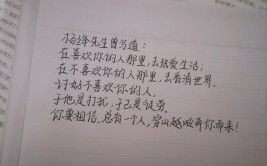 杨绛先生曾写道：
在喜欢你的人那里，去热爱生活；
在不喜欢你的人那里，去看清世界。
讨好不喜欢你的人，
于他是打扰，于己是
你要相信，总有一个人，穿山越岭奔你而来！